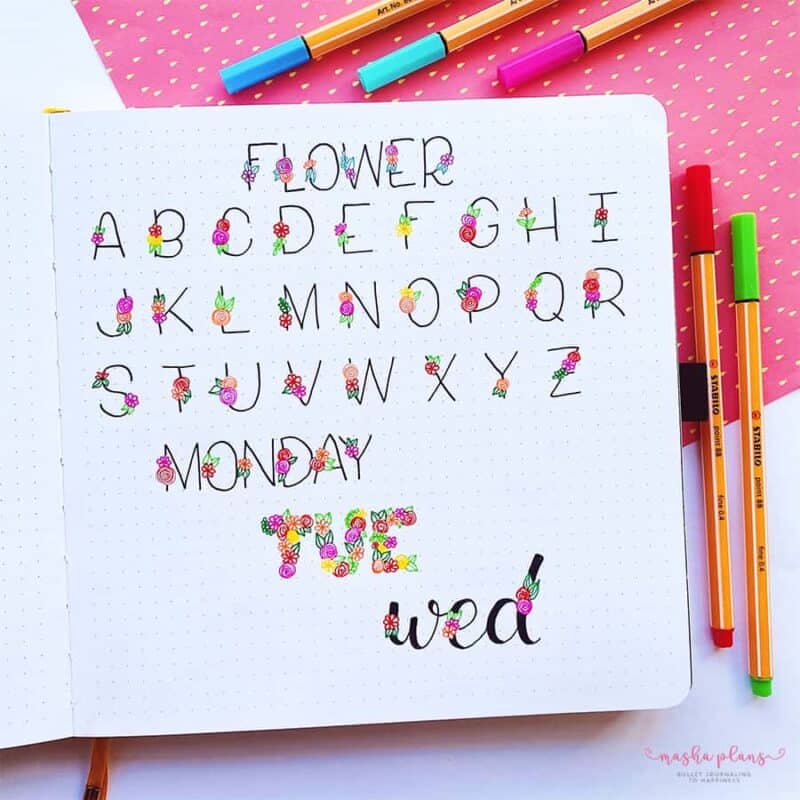 Art.No. 88
FLOWER
A B C D E F G H I
J K L M N O P Q R
S T U V W X Y Z
MONDAY
TUE
wed
STABILO point 88 fine 0.4
STABILO point 88 fine 0.4
masha plans
BULLET JOURNALING
TO HAPPINESS